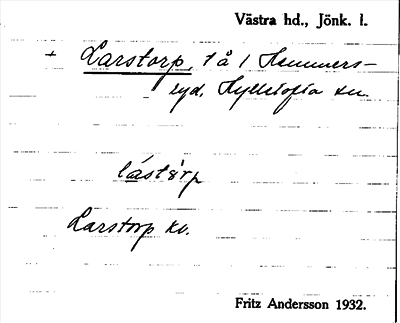 Västra hd., Jönk. l.
+ Larstorp, 1 å 1 Hemmers-
ryd, Hylletofta sn.
lástò̀rp
Larstorp kv.
Fritz Andersson 1932.